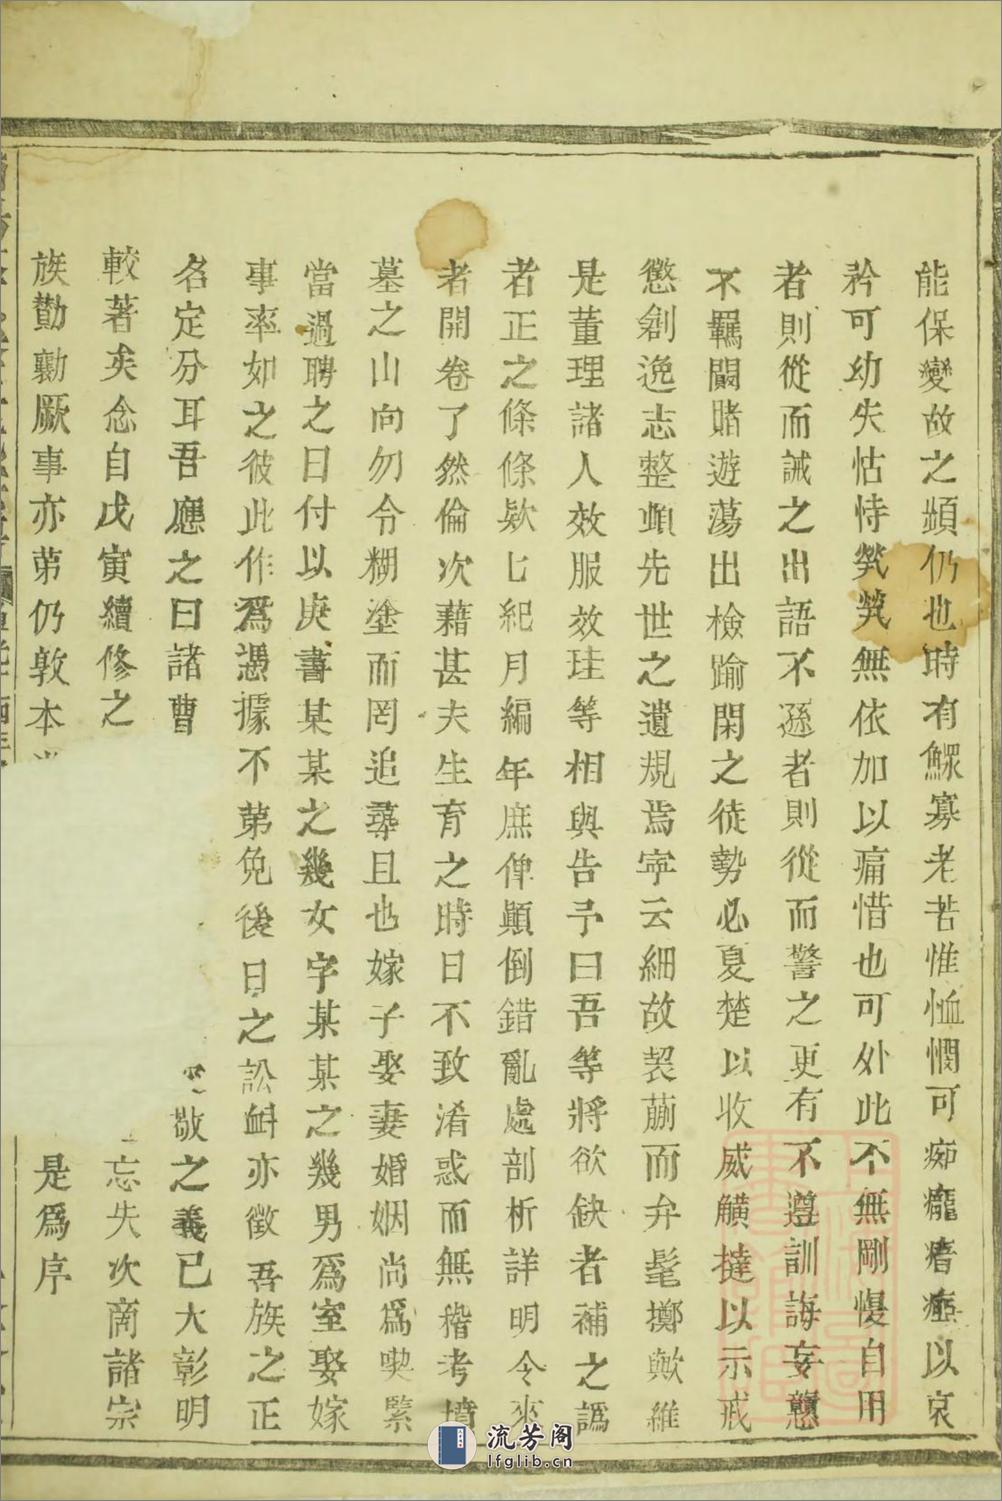 能保變故之頻仍也時有鰥寡老若惟恤憫可痴癃瘖瘂以哀
矜可幼失怙恃煢煢無依加以痛惜也可外此不無剛愎自用
者則從而誡之出語不遜者則從而警之更有不遵訓誨妄戇
不羈闘賭遊蕩出檢踰閑之徒勢必夏楚以收威觵撻以示戒
懲創逸志整頓先世之遺規焉寧云細故䂮蒯而弁髦擲歟維
是董理諸人效服效珪等相與告予曰吾等將欲缺者補之譌
者正之條條欵七紀月編年庶俾顛倒錯亂處剖析詳明令來
者開卷了然倫次藉甚夫生育之時日不致淆惑而無稽考墳
墓之山向勿令糊塗而罔追尋且也嫁子娶妻婚姻尚爲喫緊
當過聘之日付以庚書某某之幾女字某某之幾男爲室娶嫁
事率如之彼此作爲憑據不苐免後日之訟衅亦徵吾族之正
名定分耳吾應之曰諸曹 敬之義已大彰明
較著矣念自戊寅續修之 忘失次商諸宗
族勸勷厥事亦苐仍敦本 是爲序
流芳阁
lfglib.cn